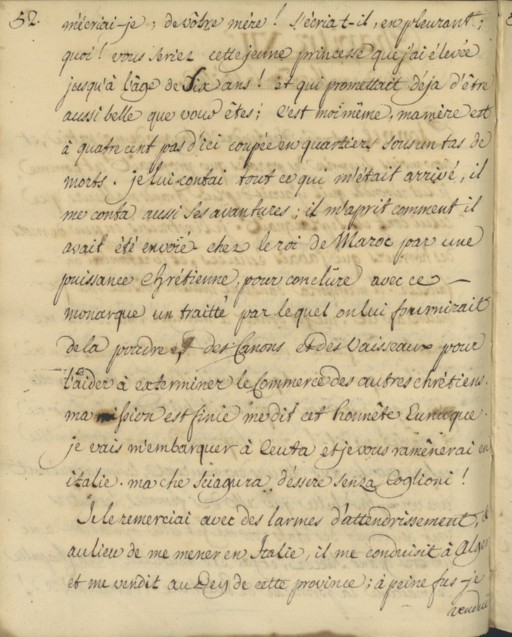 52.
m'écriai-je ; de vôtre mère ! s'écria t-il, en pleurant ;
quoi ! vous seriez cette jeune princesse que j'ai élevée
jusqu'à l'âge de six ans ! et qui promettait déja d'être
aussi belle que vous êtes ; C'est moi même, ma mère est
à quatre cent pas d'ici coupée en quartiers sous un tas de
morts. je lui contai tout ce qui m'était arrivé, il
me conta aussi ses avantures ; il m'aprit comment il
avait été envoié chez le roi de Maroc par une
puissance Chrétienne, pour conclûre avec ce —
monarque un traitté par lequel on lui fournirait
de la poudre, des Canons et des Vaisseaux pour
l'aider à exterminer le Commerce des autres chrétiens.
ma mission est finie me dit cet honnête Eunuque.
je vais m'embarquer à Ceuta et je vous ramênerai en
italie. ma che sciagura d'essere senza Coglioni !
Je le remerciai avec des larmes d'attendrissement, &
au lieu de me mener en Italie, il me conduisit à Alger
et me vendit au Dey de cette province ; à peine fus-je
vendue